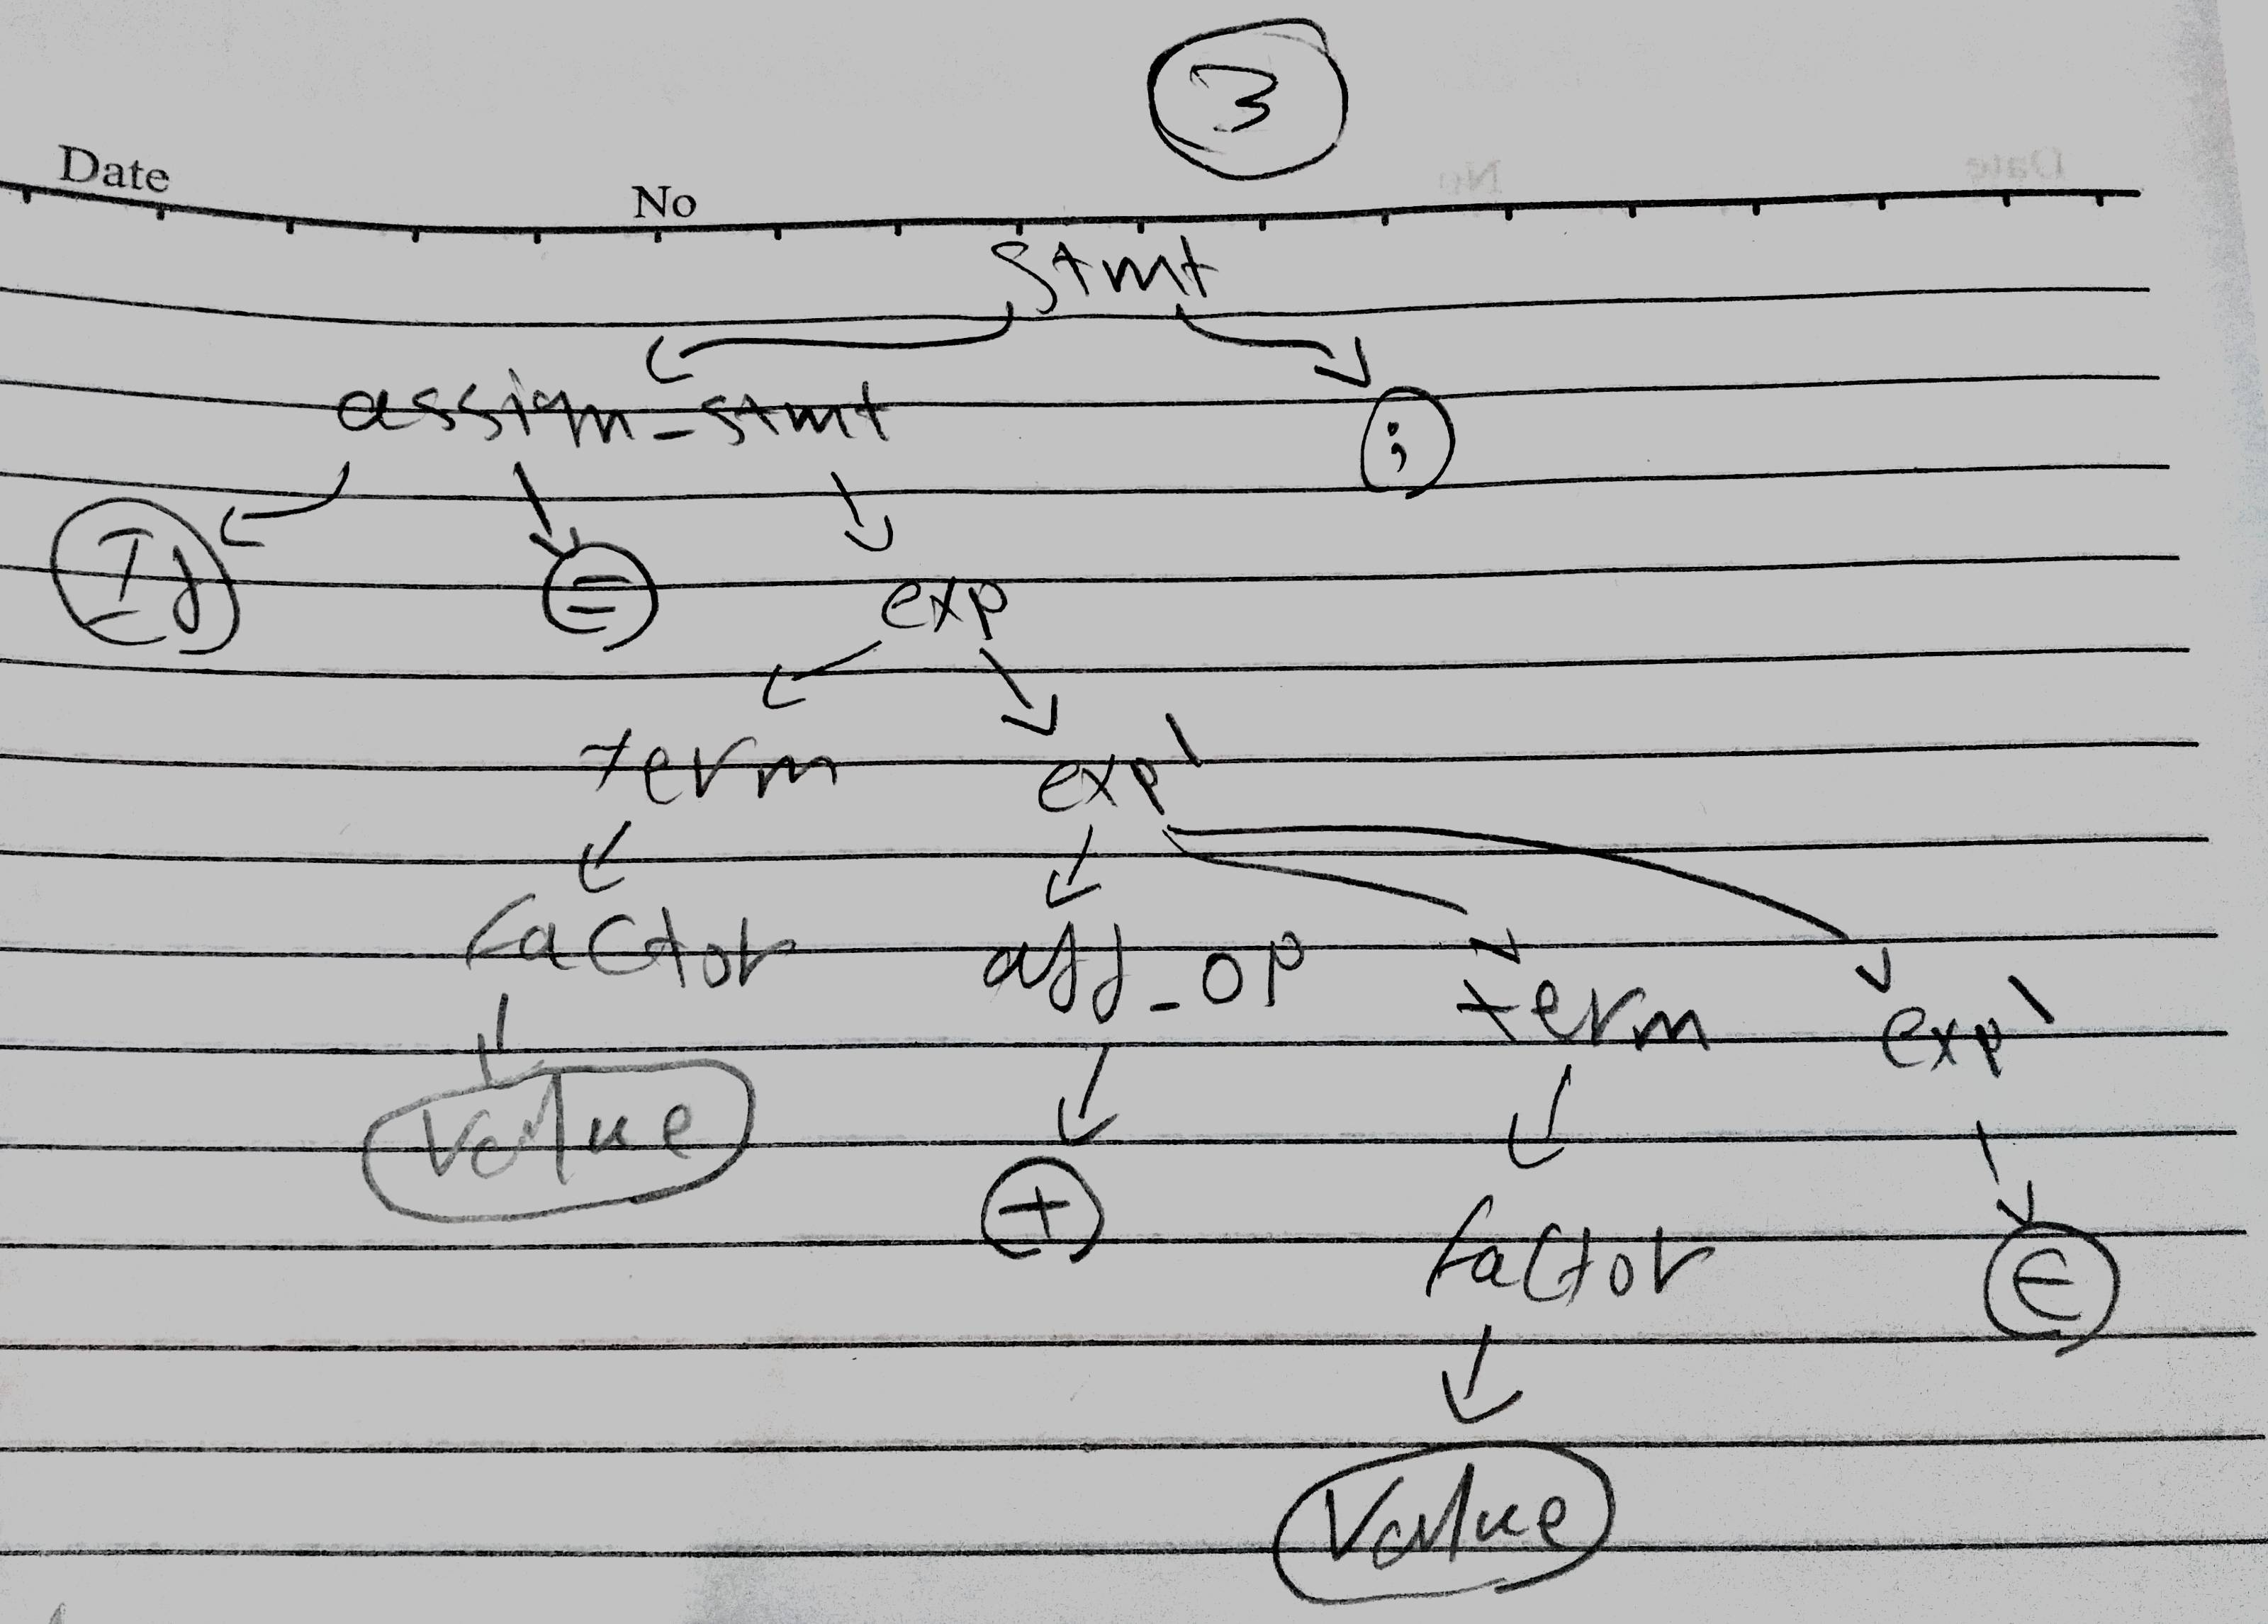 3
Date No
stmt
assign-stmt ;
Id = exp
term exp'
factor add-op term exp'
value + factor ε
value